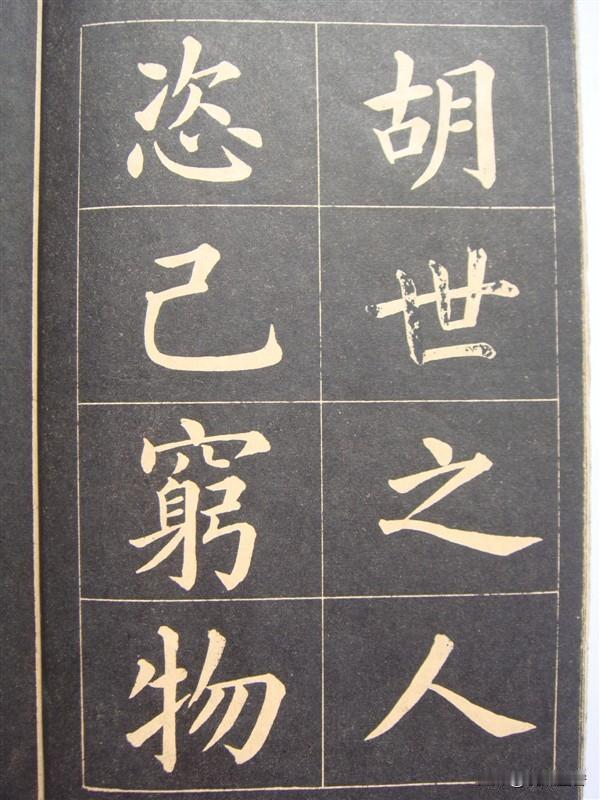 胡世之人
恣己窮物